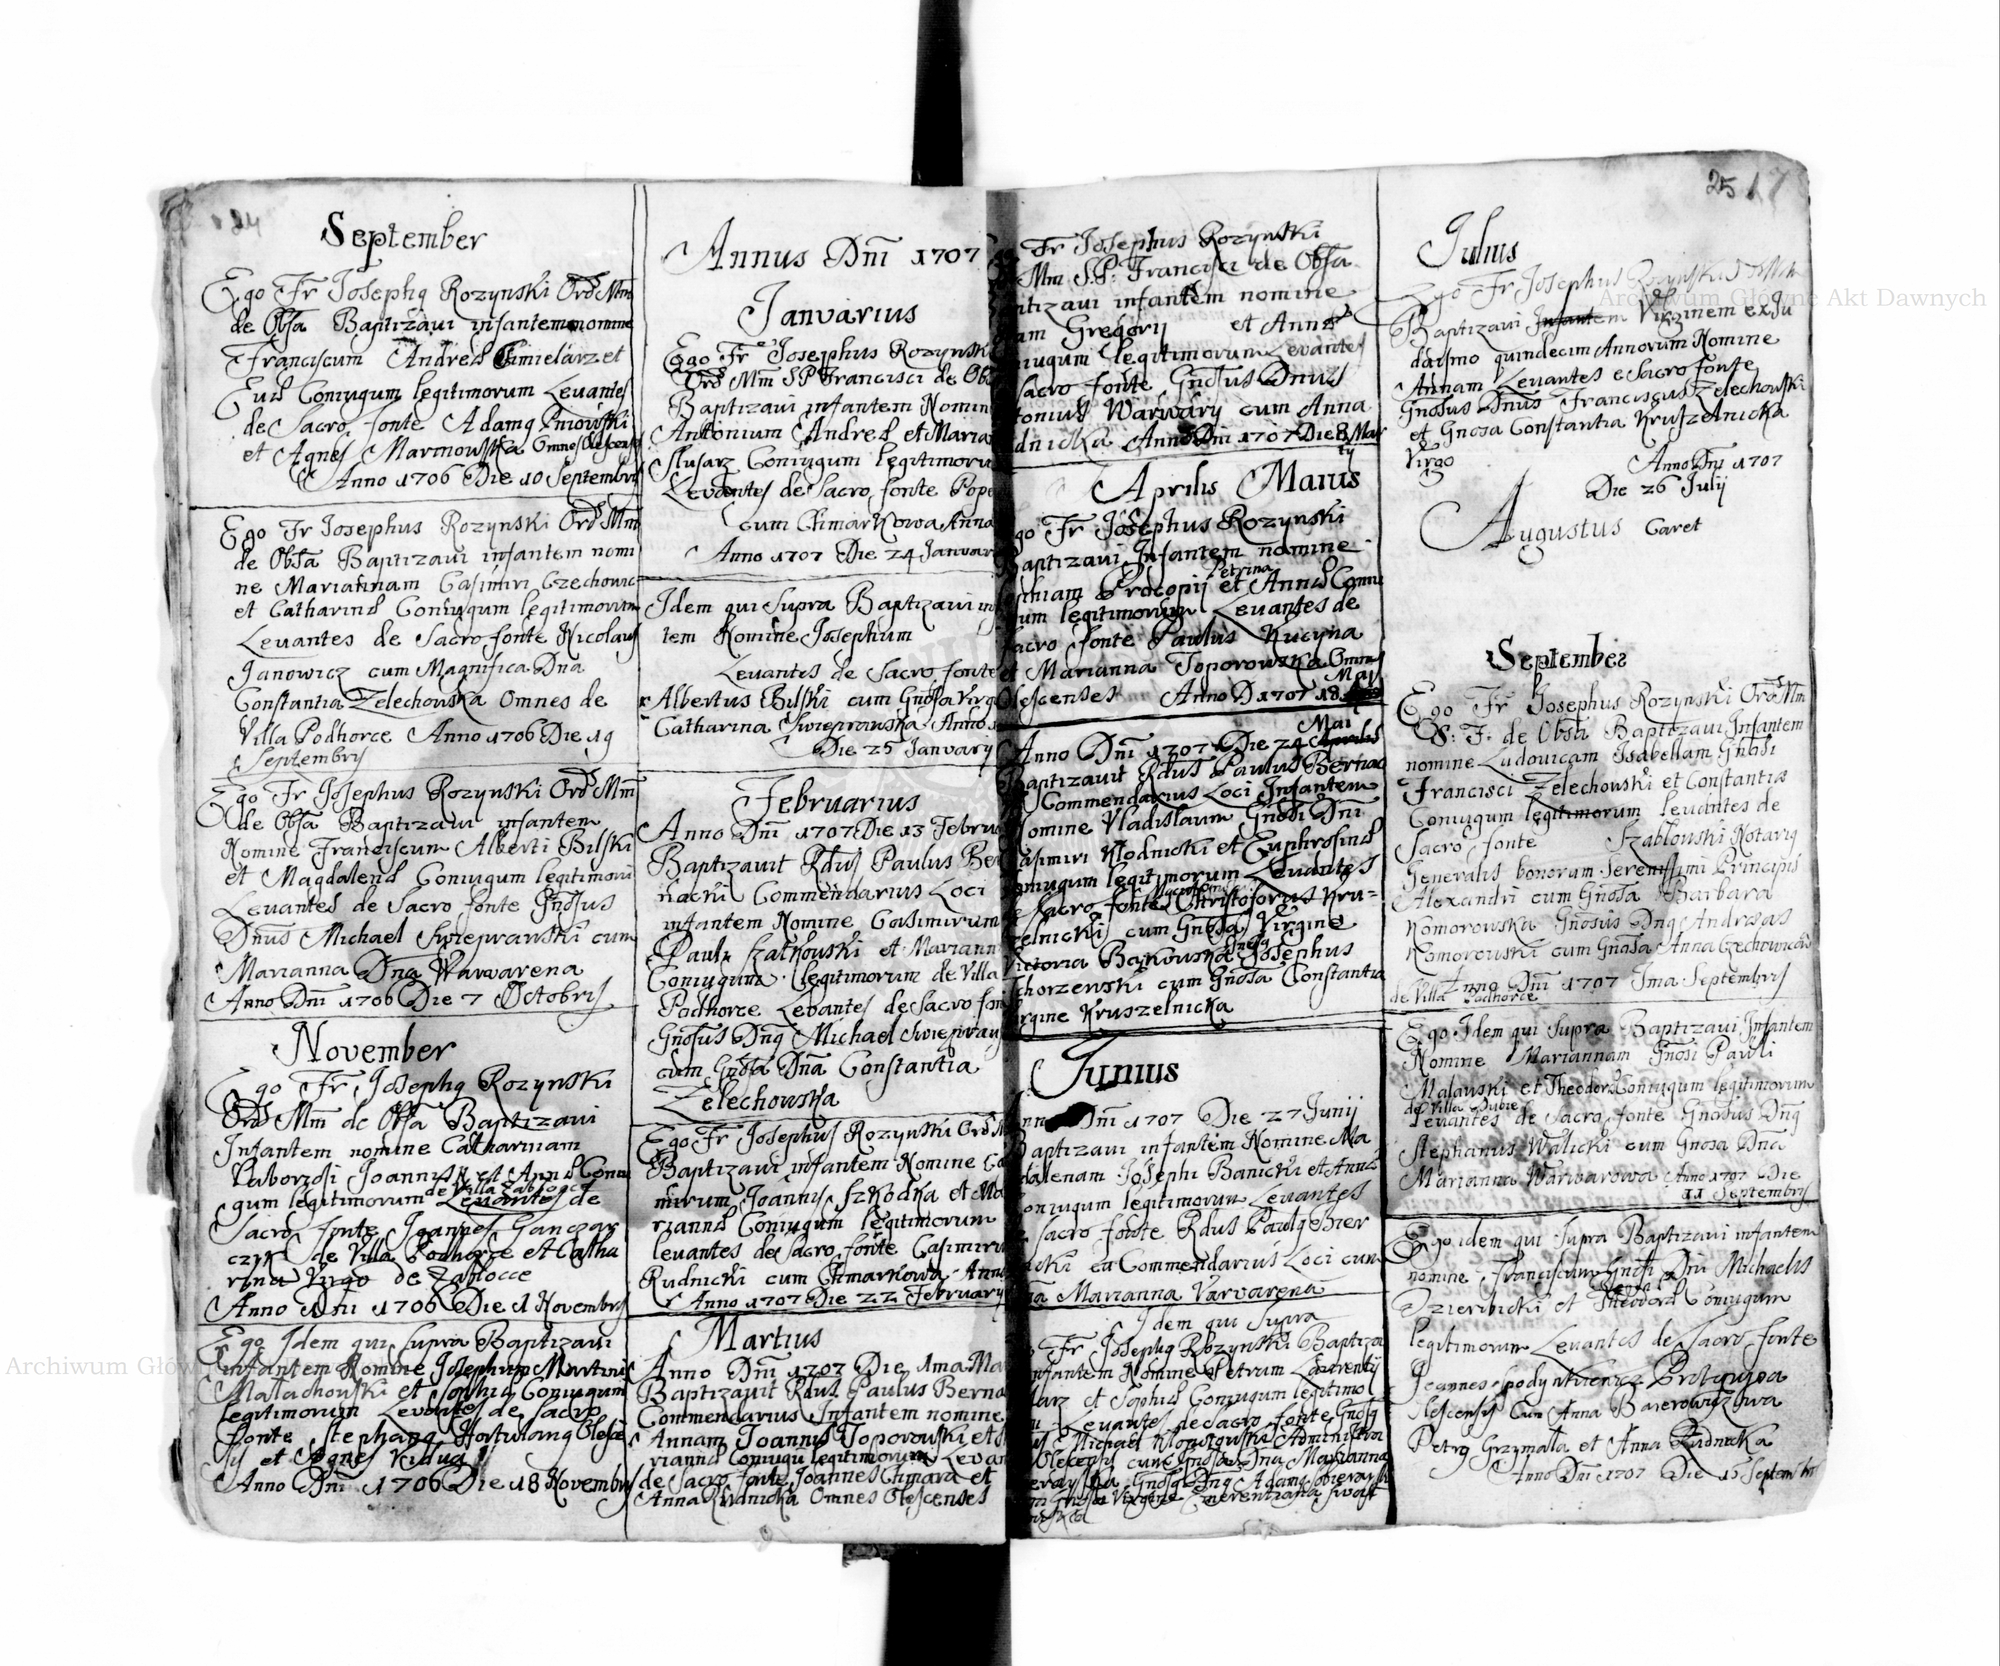 24
September
Ego Fr Josephq Rozynski Ord Mm
de Obsa Baptizavi infantem nomine
Franciscum Andreæ Chmielarz et
Evæ Coniugum legitimorum Levantes
de Sacro fonte Adamq Pniowski
et Agnes Marmowska Omnes Olescens
Anno 1706 Die 10 Septembris
Ego Fr Josephus Rozynski Ord Mm
de Obsa Baptizavi infantem nomi
ne Mariannam Casimiri Czechowic
et Catharinæ Coniugum legitimorum
Levantes de Sacro fonte Nicolaus
Janowicz cum Magnifica Dna
Constantia Zelechowska Omnes de
Villa Podhorce Anno 1706 Die 19
Septembris
Ego Fr Josephus Rozynski Ord Mm
de Obsa Baptizavi infantem
Nomine Franciscum Alberti Bilski
et Magdalenæ Coniugum legitimoru
Levantes de Sacro fonte Gnosus
Dnus Michael Swieprawski cum
Marianna Dna Warwarena
Anno Dni 1706 Die 7 Octobris
November
Ego Fr Josephq Rozynski
Ord Mm de Obsa Baptizavi
Infantem nomine Catharinam
Laboriosi Joannis N et Annæ Coniu
de Villa Zablocce
gum legitimorum Levantes de
Sacro fonte Joannes Ganczar
czyk de Villa Podhorce et Catha
rina Virgo de Zablocce
Anno Dni 1706 Die 1 Novembris
Ego Idem qui Supra Baptizavi
infantem Nomine Josephum Martini
Malachowski et Sophiæ Coniugum
legitimorum Levantes de Sacro
fonte Stephanq Hortulanq Olesce
sis et Agnes Vidua
Anno Dni 1706 Die 18 Novembris
Annus Dni 1707
Januarius
Ego Fr Josephus Rozynsk
Ord Mm SP Francisci de Obs
Baptizavi infantem Nomin
Antonium Andreæ et Maria
Slusarz Coniugum legitimoru
Levantes de Sacro fonte Pope
cum Chmarkowa Anna
Anno 1707 Die 24 Januar
Idem qui Supra Baptizavi in
tem Nomine Josephum
Levantes de Sacro fonte
Albertus Bilski cum Gnosa Virg
Catharina Swieprawska Anno
Die 25 Januarÿ
Februarius
Anno Dni 1707 Die 13 Februa
Baptizavit Rdus Paulus Ber
nacki Commendarius Loci
infantem Nomine Casimirum
Pauli Szalkowski et Mariann
Coniugum legitimorum de Villa
Podhorce Levantes de Sacro fon
Gnosus Dnq Michael Swiepraw
cum Gnosa Dna Constantia
Zelechowska
Ego Fr Josephus Rozynski Ord M
Baptizavi infantem Nomine Ca
mirum Joannis Szkodka et Ma
riannæ Coniugum legitimorum
levantes de Sacro fonte Casimiru
Rudnicki cum Chmarkowa Anna
Anno 1707 Die 22 Februarÿ
Martius
Anno Dni 1707 Die 1ma Ma
Baptizavit Rdus Paulus Berna
Commendarius Infantem nomine
Annam Joannis Toporowski et
riannæ Coniugu legitimorum Levan
de Sacro fonte Joannes Chmara et
Anna Rudnicka Omnes Olescenses
25 17
Fr Josephus Rozynski
Mm S.P. Francisci de Obsa
ptizavi infantem nomine
am Gregorij et Annæ
iugum legitimorum Levantes
sacro fonte Gnosus Dnus
tonius Warwary cum Anna
dnicka Anno Dni 1707 Die 8 Mar
tÿ
Aprilis Maius
go Fr Josephus Rozynski
Baptizavi Infantem nomine
Petrina
Procopij et Annæ Coniu
gum legitimorum Levantes de
sacro fonte Paulus Kucyna
et Marianna Toporowska Omnes
Maj
lescenses Anno D 1707 18
Mai
Anno Dni 1707 Die 24 Aprilis
Baptizavit Rdus Paulus Bernac
Commendarius Loci Infantem
Nomine Vladislaum Gnosi Dni
Casimiri Klodnicki et Euphrosinæ
oniugum legitimorum Levantes
Sacro fonte Christoforus Kru-
zelnicki cum Gnosa Virgine
Victoria Bakowska Josephus
chorzewski cum Gnosa Constantia
irgine Kruszelnicka
Junius
Anno Dni 1707 Die 27 Junij
Baptizavi infantem Nomine Ma
dalenam Josephi Banicki et Annæ
oniugum legitimorum Levantes
Sacro fonte Rdus Paulq Ber
acki Commendarius Loci cum
Marianna Varvarena
Idem qui Supra
Fr Josephq Rozynski Baptiza
infantem Nomine Petrum Laurentij
larz et Sophiæ Coniugum legitimo
Levantes de Sacro fonte Gnosq
Michael Administra
Olescensis cum Gnosa Dna Marianna
Gnosq Dnq Adamq Sobieray
Gnosa Virgine Emerentiana Swast
Julius
Ego Fr Josephus Rozynski
Baptizavi Infantem Virginem ex Ju
daismo quindecim Annorum Nomine
Annam Levantes e Sacro fonte
Gnosus Dnus Franciscus Zelechowski
et Gnosa Constantia Kruszelnicka
Virgo Anno Dni 1707
Die 26 Julij
Augustus Caret
September
Ego Fr Josephus Rozynski Ord Mm
S: F: de Obsa Baptizavi Infantem
nomine Ludovicam Isabellam Gnosi
Francisci Zelechowski et Constantiæ
Coniugum legitimorum levantes de
Sacro fonte Szablowski Notariq
Generalis bonorum Serenissimi Principis
Alexandri cum Gnosa Barbara
Komorowska Gnosus Dnq Andreas
Komorowski cum Gnosa Anna Czechowiczowa
Anno Dni 1707 Ima Septembris
de Villa Podhorce
Ego Idem qui Supra Baptizavi Infantem
Nomine Mariannam Gnosi Pauli
Malawski et Theodoræ Coniugum legitimorum
de Villa Dubie
Levantes de Sacro fonte Gnosus Dnq
Stephanus Walicki cum Gnosa Dna
Marianna Warwarowa Anno 1707 Die
11 Septembris
Ego idem qui Supra Baptizavi infantem
nomine Franciscum Gnosi Dni Michaelis
Dzierzbicki et Theodoræ Coniugum
legitimorum Levantes de Sacro fonte
Joannes Spodynkiewicz
Olescensis Cum Anna Bauerowiczowa
Petrq Grzymala et Anna Rudnicka
Anno Dni 1707 Die 15 Septembr
Archiwum Główne Akt Dawnych
Archiwum Główne